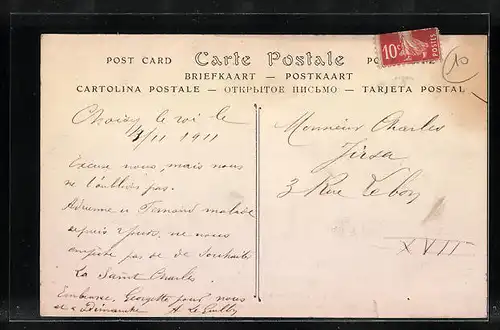 POST CARD Carte Postale
BRIEFKAART — POSTKAART
CARTOLINA POSTALE — ОТКРЫТОЕ ПИСЬМО — TARJETA POSTAL
10c POSTES
10
Choisy le roi le
/11 1911
Excuse nous, mais nous
ne l'oublions pas.
Adrienne et Fernand malade
depuis jours, ne nous
pas de te souhaiter
La Saint Charles
Embrasse Georgette pour nous
et à Dimanche A Le
Monsieur Charles
Jirsa
3 Rue Lebon
XVII